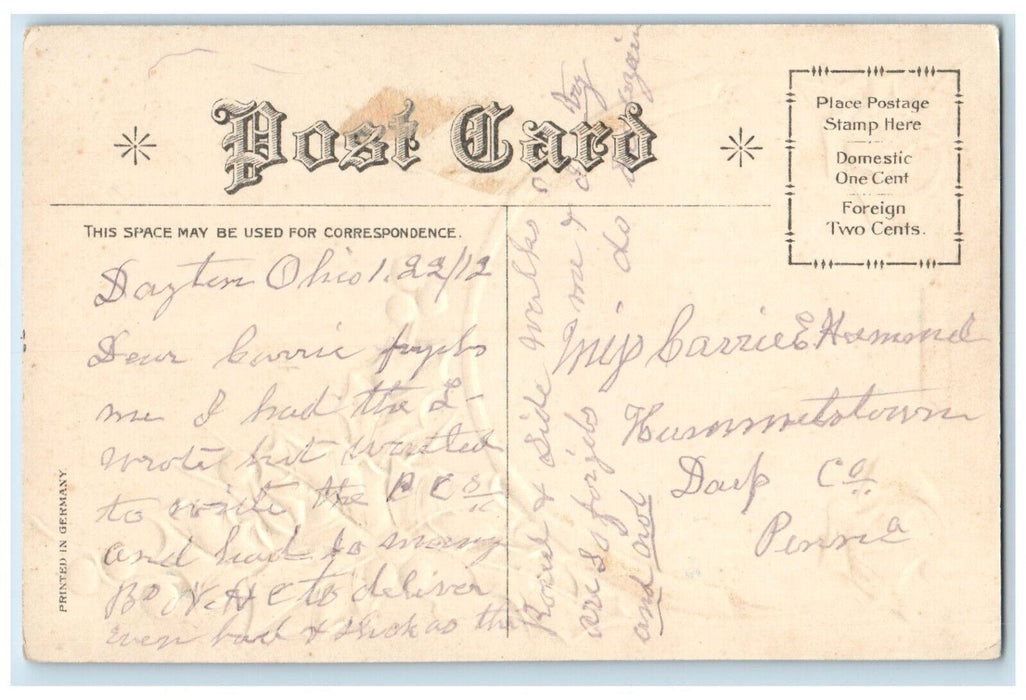 Post Card
Place Postage
Stamp Here
Domestic
One Cent
Foreign
Two Cents.
THIS SPACE MAY BE USED FOR CORRESPONDENCE.
PRINTED IN GERMANY
Dayton Ohio 1.22/12
Dear Carrie
me I had the L-
wrote but wanted
to write the P Cs
and had so many
to deliver
even bad & slick as the
Road & side walks
are So me & try
and not do it again
Miss Carrie
Hummelstown
Daup Co
Penna